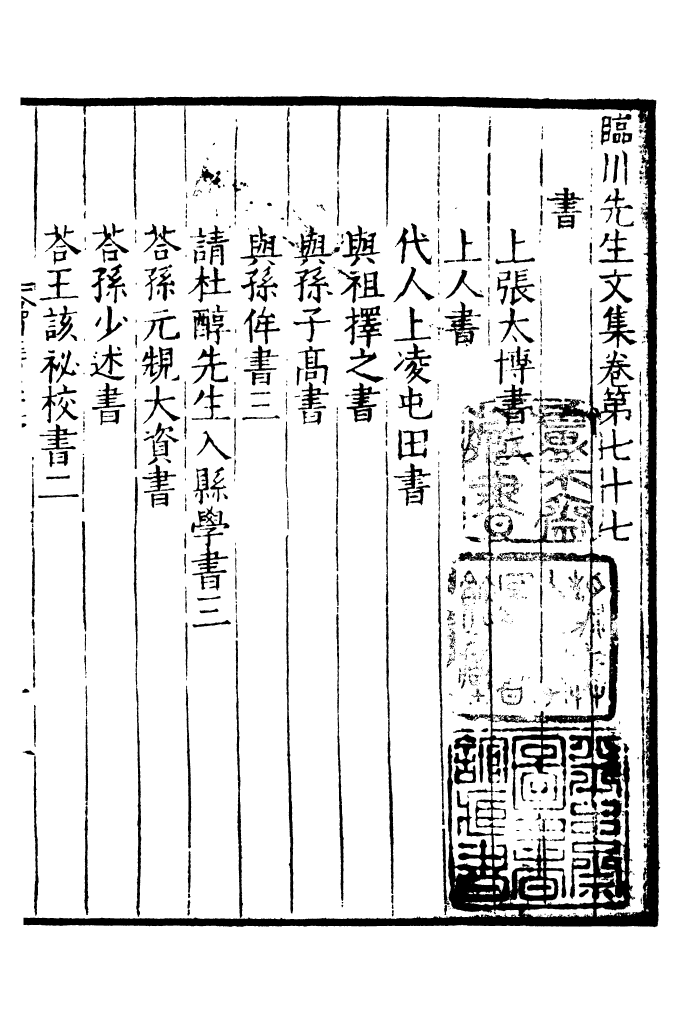 臨川先生文集卷第七十七
書
上張太博書二
上人書
代人上凌屯田書
與祖擇之書
與孫子高書
與孫侔書三
請杜醇先生入縣學書二
荅孫元規大資書
荅孫少述書
荅王該祕校書二